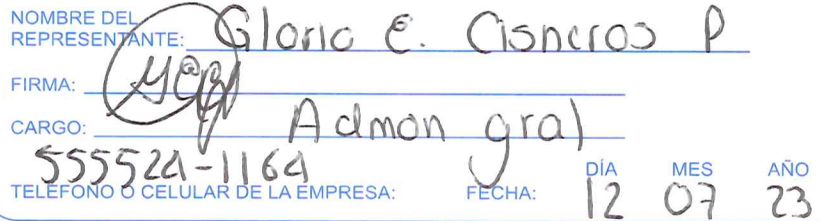 NOMBRE DEL
REPRESENTANTE: Gloria E. Cisneros P
FIRMA:
CARGO: Admon gral
555524-1164
TELEFONO O CELULAR DE LA EMPRESA: FECHA: DÍA 12 MES 07 AÑO 23